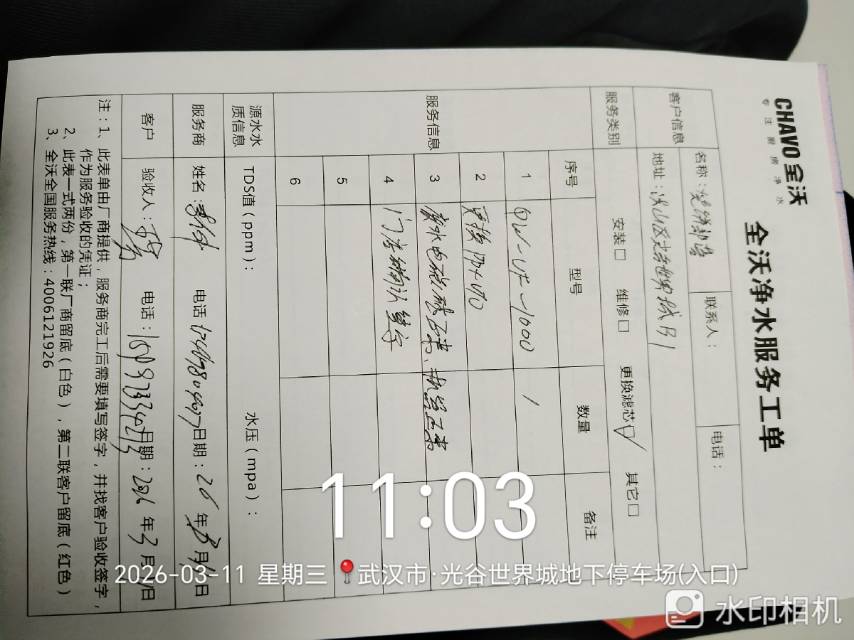 CHAVO 全沃
专注厨房净水
全沃净水服务工单
客户信息
名称：
联系人：
电话：
地址：洪山区光谷世界城B1
服务类别
安装□ 维修□ 更换滤芯☑ 其它□
服务信息
序号 型号 数量 备注
1 QW-UF-1000 1
2 更换
3 废水电磁阀正常，
4 门店确认签字
5
6
源水水质信息
TDS值（ppm）： 水压（mpa）：
服务商 姓名： 电话 日期：26年3月11日
客户 验收人： 电话： 日期：2026年3月11日
注：1、此表单由厂商提供，服务商完工后需要填写签字，并找客户验收签字，
作为服务验收的凭证；
2、此表一式两份，第一联厂商留底（白色），第二联客户留底（红色）
3、全沃全国服务热线：4006121926
11:03
2026-03-11 星期三 武汉市·光谷世界城地下停车场(入口)
水印相机